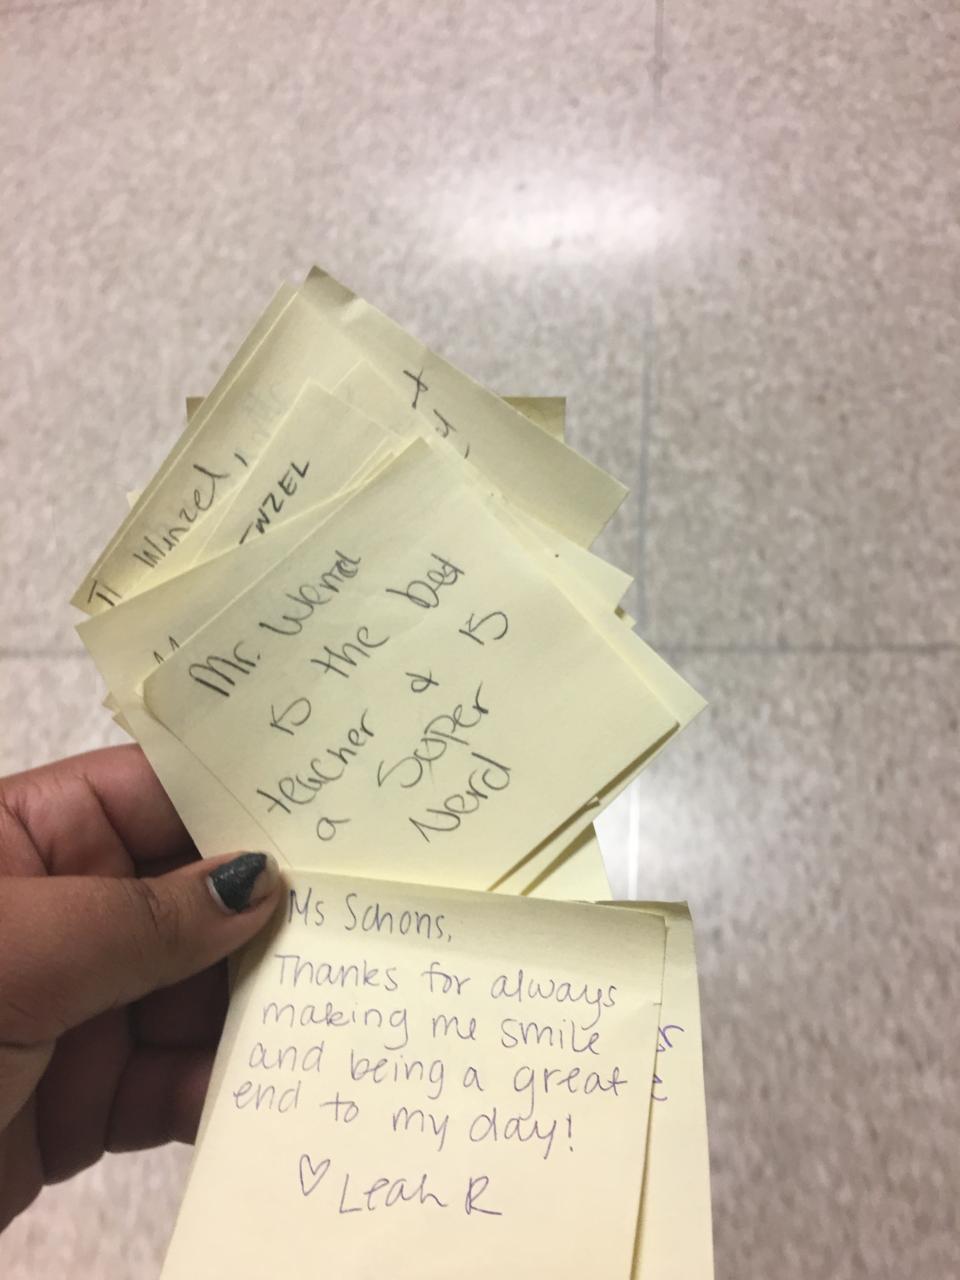 Wenzel,
NZEL
Mr. Wenzel
is the best
teacher & is
a Super
Nerd
Ms Schons,
Thanks for always
making me smile
and being a great
end to my day!
♡ Leah R